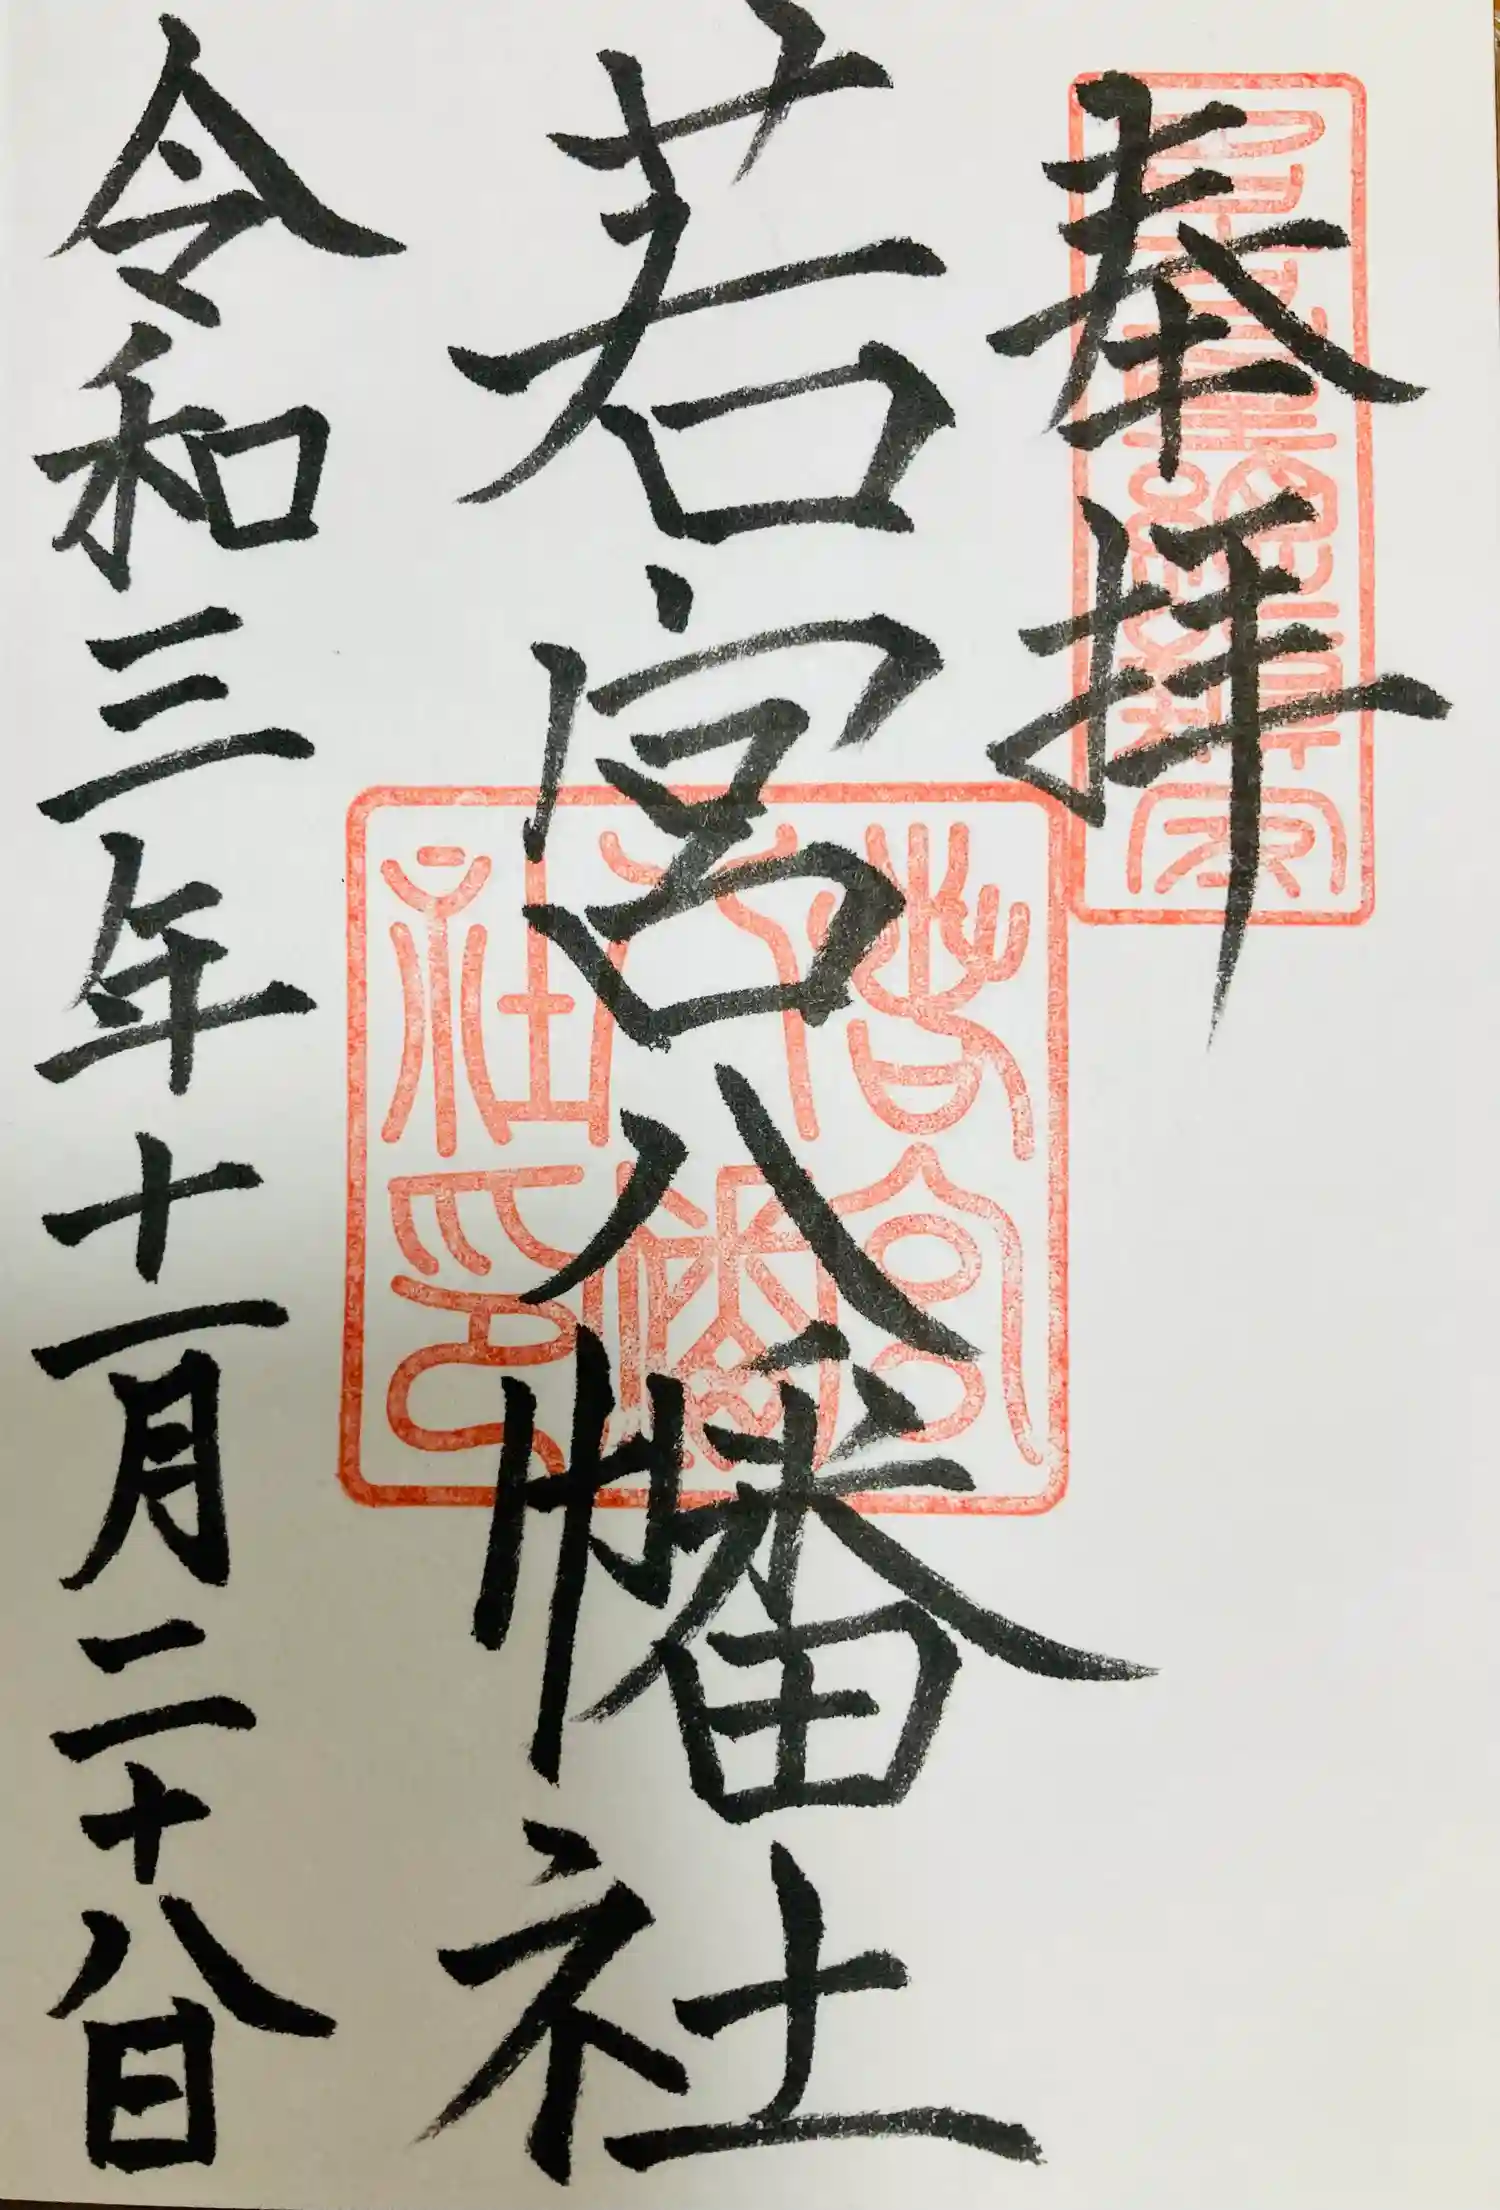 奉拝
若宮八幡社
若宮八幡社印
令和三年十一月二十八日